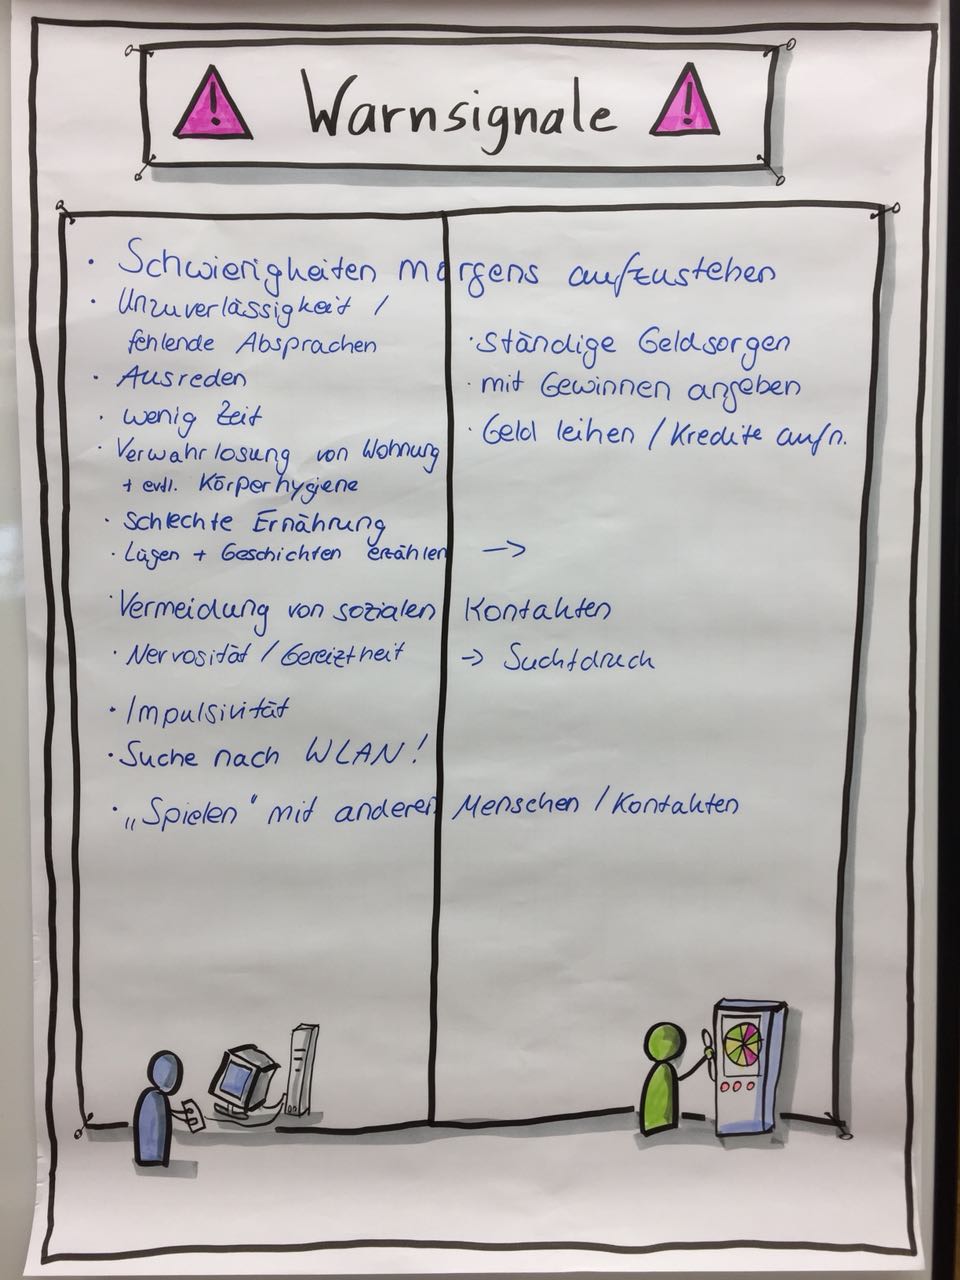 ! Warnsignale !
• Schwierigkeiten morgens aufzustehen
• Unzuverlässigkeit /
fehlende Absprachen
• Ausreden
• wenig Zeit
• Verwahrlosung von Wohnung
+ evtl. Körperhygiene
• Schlechte Ernährung
• Lügen + Geschichten erzählen →
• Vermeidung von sozialen Kontakten
• Nervosität / Gereiztheit → Suchtdruck
• Impulsivität
• Suche nach WLAN!
• „Spielen" mit anderen Menschen / Kontakten
• Ständige Geldsorgen
• mit Gewinnen angeben
• Geld leihen / Kredite aufn.